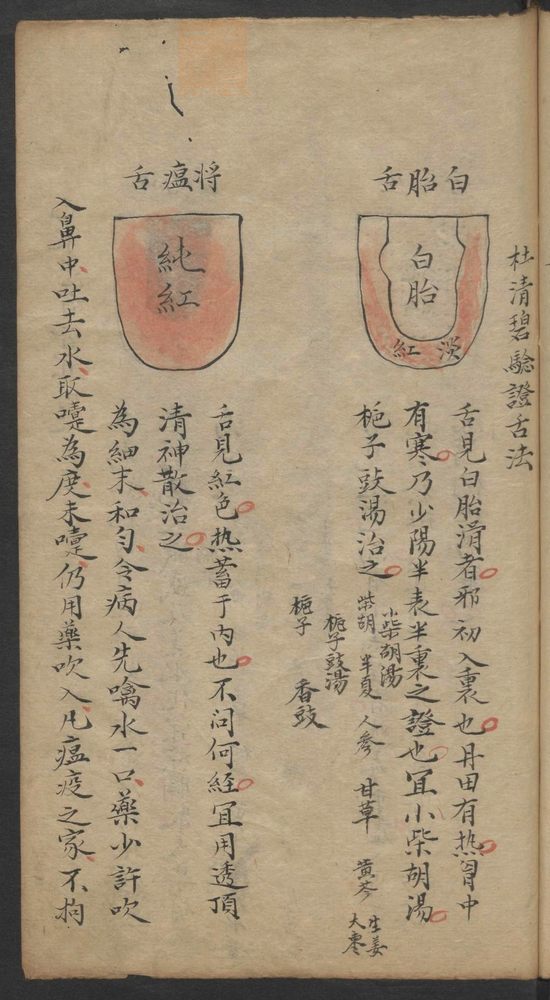 杜清碧驗證舌法
白胎舌
白胎
淡紅
舌見白胎滑者邪初入裏也丹田有热胷中
有寒乃少陽半表半裏之證也宜小柴胡湯
梔子豉湯治之
小柴胡湯
柴胡 半夏 人參 甘草 黄芩 生姜 大棗
梔子豉湯
梔子 香豉
将瘟舌
純紅
舌見紅色热蓄于内也不问何經宜用透頂
清神散治之
為細末和匀令病人先噙水一口藥少許吹
入鼻中吐去水取嚏為度未嚏仍用藥吹入凡瘟疫之家不拘